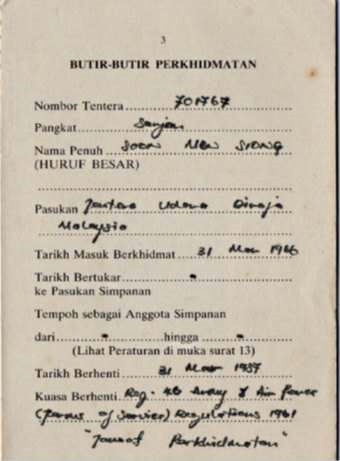 3
BUTIR-BUTIR PERKHIDMATAN
Nombor Tentera 701767
Pangkat Sarjan
Nama Penuh SOON NEW SIONG
(HURUF BESAR)
Pasukan Tentera Udara Diraja
Malaysia
Tarikh Masuk Berkhidmat 31 Mac 1966
Tarikh Bertukar -
ke Pasukan Simpanan
Tempoh sebagai Anggota Simpanan
dari - hingga -
(Lihat Peraturan di muka surat 13)
Tarikh Berhenti 31 Mac 1987
Kuasa Berhenti Reg: 4B Army & Air Force
(Terms of Service) Regulations 1961
"Tamat Perkhidmatan"